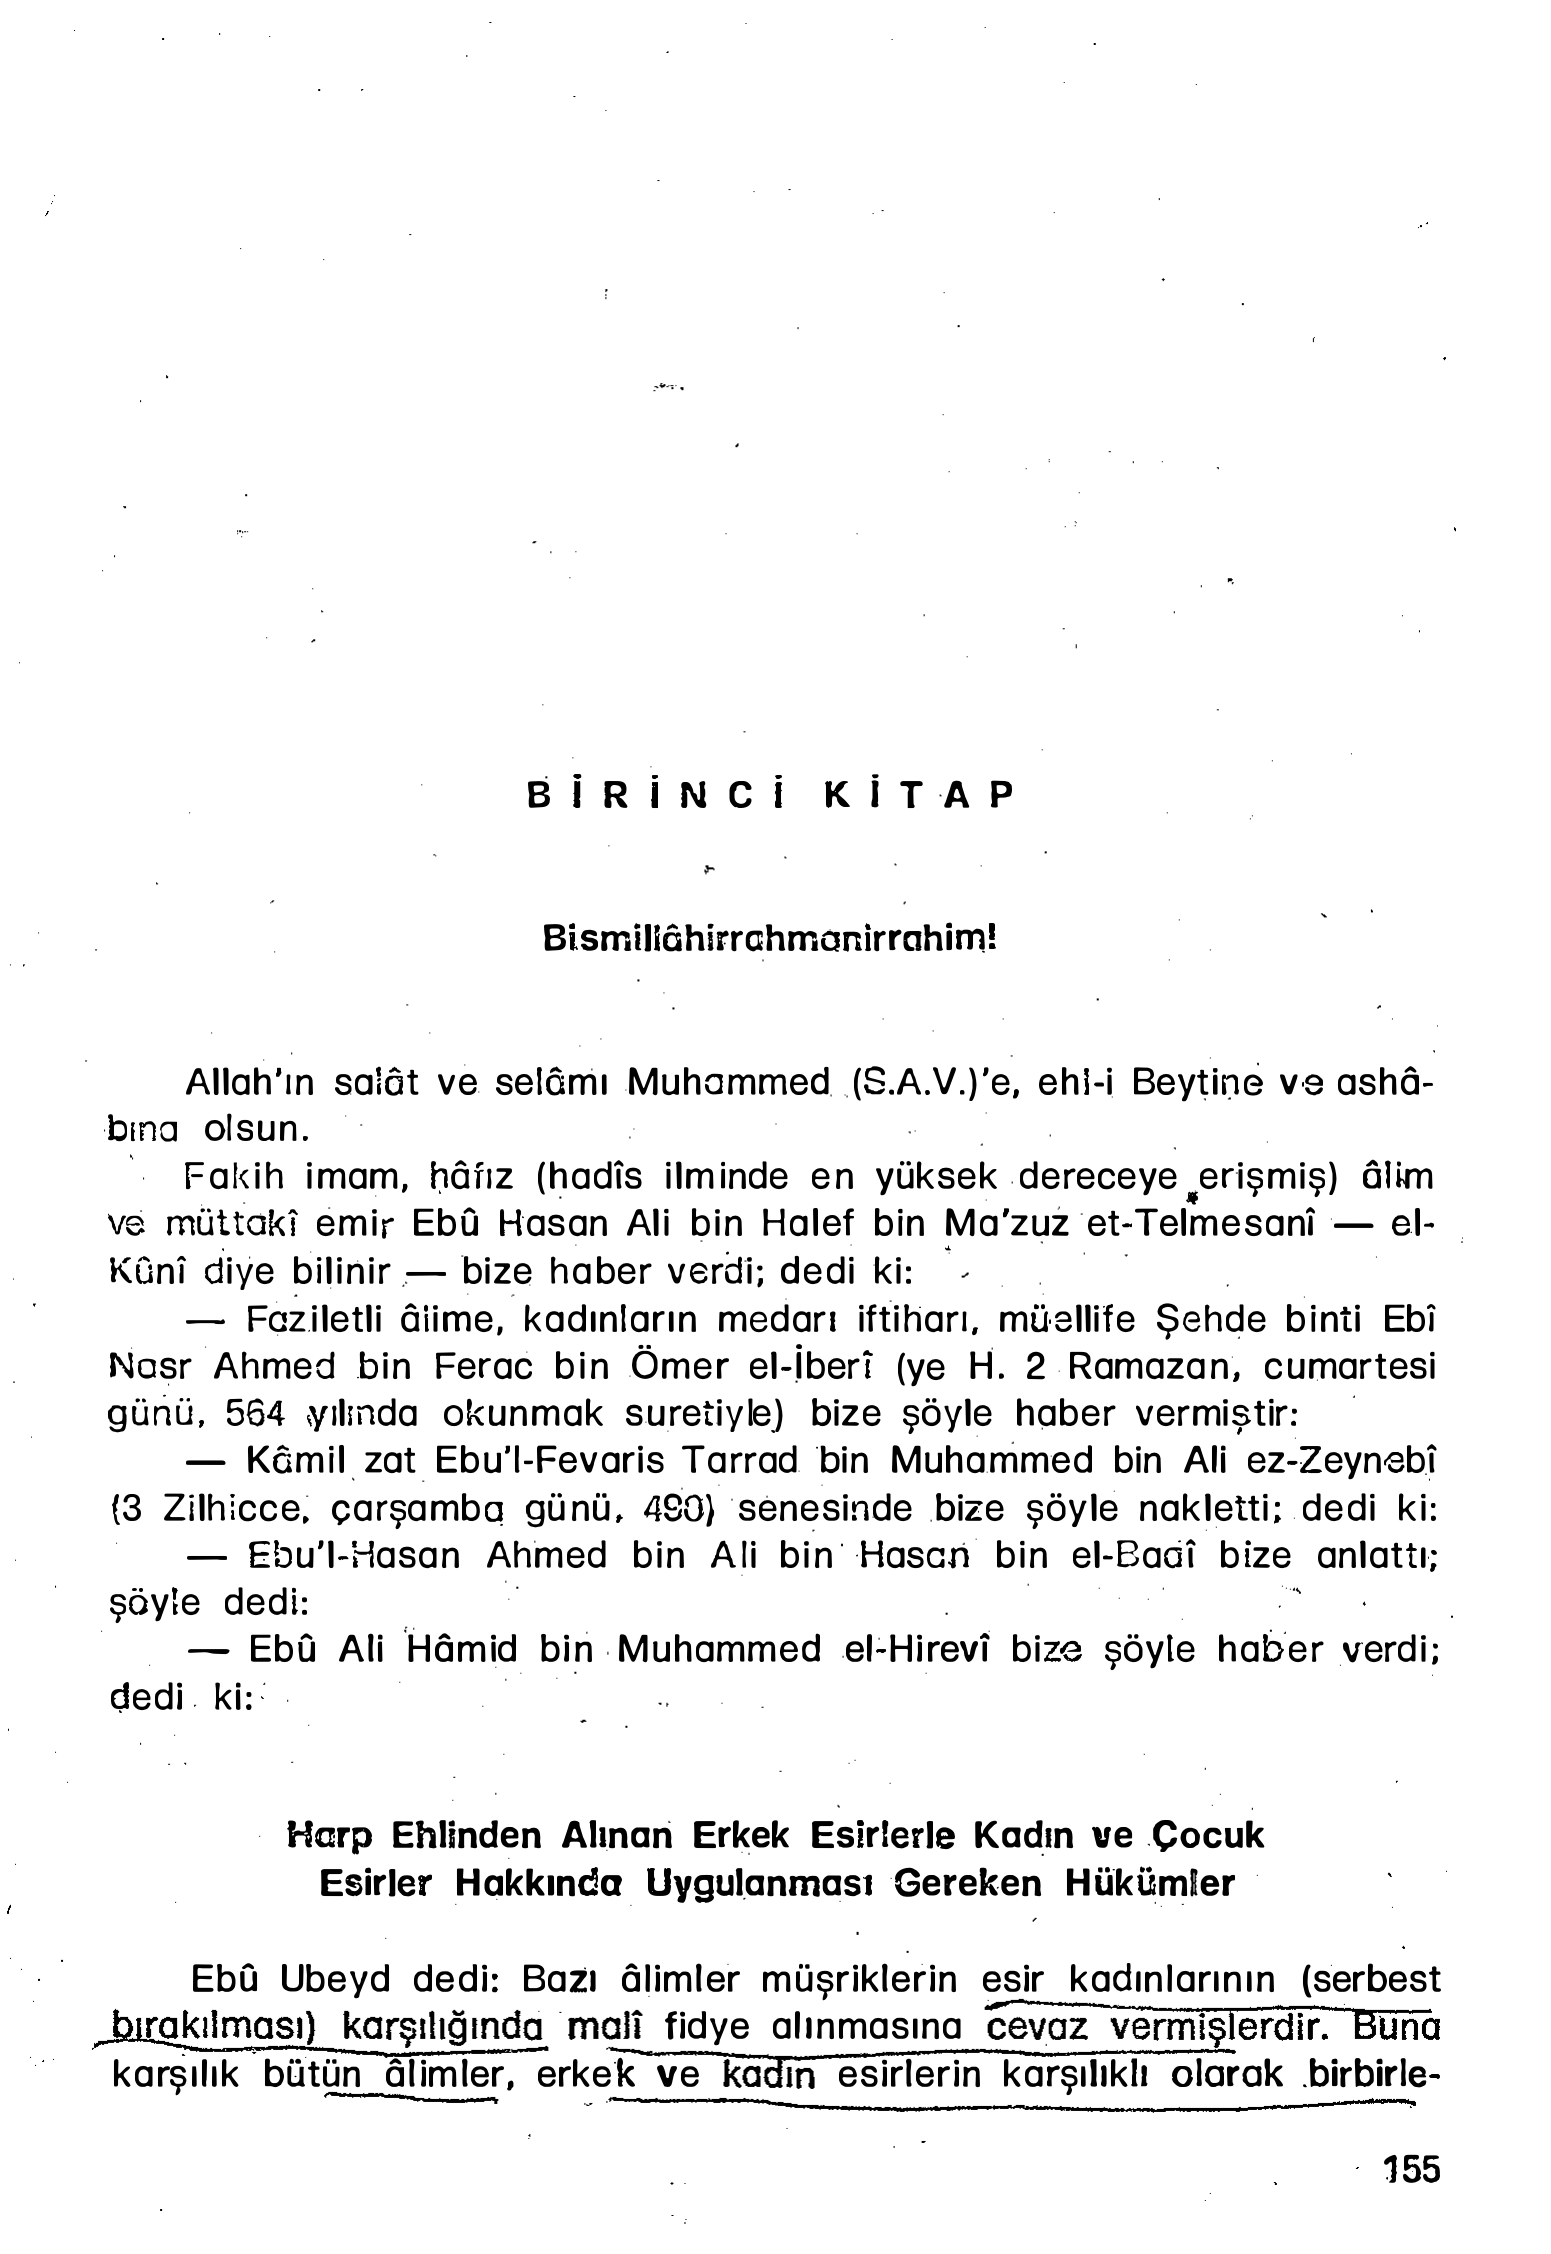 BİRİNCİ KİTAP
Bismillâhirrahmanirrahim!
Allah'ın salât ve selâmı Muhammed (S.A.V.)'e, ehl-i Beytine ve ashâ-
bına olsun.
Fakih imam, hâfız (hadîs ilminde en yüksek dereceye erişmiş) âlim
ve müttakî emir Ebû Hasan Ali bin Halef bin Ma'zuz et-Telmesanî — el-
Kûnî diye bilinir — bize haber verdi; dedi ki:
— Faziletli âlime, kadınların medarı iftiharı, müellife Şehde binti Ebî
Nasr Ahmed bin Ferac bin Ömer el-İberî (ye H. 2 Ramazan, cumartesi
günü, 564 yılında okunmak suretiyle) bize şöyle haber vermiştir:
— Kâmil zat Ebu'l-Fevaris Tarrad bin Muhammed bin Ali ez-Zeynebî
(3 Zilhicce, çarşamba günü, 490) senesinde bize şöyle nakletti; dedi ki:
— Ebu'l-Hasan Ahmed bin Ali bin Hasan bin el-Badî bize anlattı;
şöyle dedi:
— Ebû Ali Hâmid bin Muhammed el-Hirevî bize şöyle haber verdi;
dedi ki:
Harp Ehlinden Alınan Erkek Esirlerle Kadın ve Çocuk
Esirler Hakkında Uygulanması Gereken Hükümler
Ebû Ubeyd dedi: Bazı âlimler müşriklerin esir kadınlarının (serbest
bırakılması) karşılığında malî fidye alınmasına cevaz vermişlerdir. Buna
karşılık bütün âlimler, erkek ve kadın esirlerin karşılıklı olarak birbirle-
155